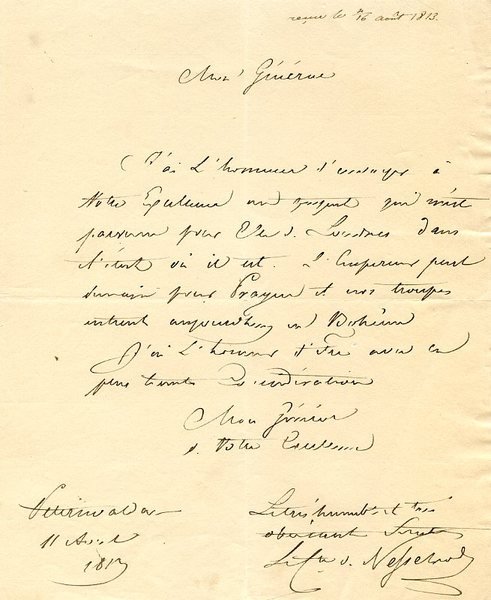 reçue le 16 août 1813.
Mon Général
J'ai l'honneur d'envoyer à
Votre Excellence un paquet qui m'est
parvenu pour Elle de Londres dans
l'état où il est. L'Empereur part
demain pour Prague et nos troupes
entrent aujourd'hui en Bohême
J'ai l'honneur d'être avec la
plus haute Considération
Mon Général
de Votre Excellence
Le très humble et très
obéissant Serviteur
Le Cte de Nesselrode
11 Août
1813